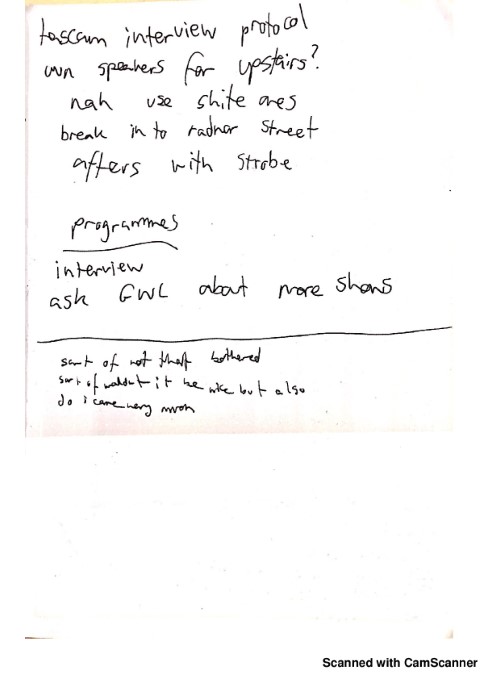 tascam interview protocol
own speakers for upstairs?
nah use shite ones
break in to radnor street
afters with strobe
programmes
interview
ask GWL about more shows
sort of not that bothered
sort of wouldn't it be nice but also
do i care very much
Scanned with CamScanner